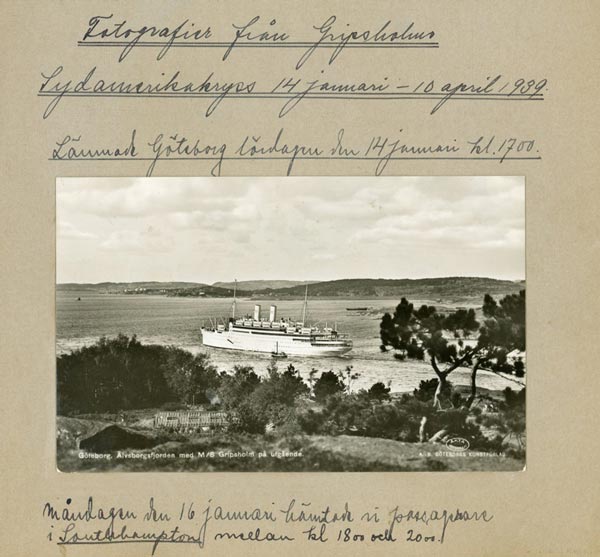 Fotografier från Gripsholms
Sydamerikakryss 14 januari – 10 april 1939.
Lämnade Göteborg lördagen den 14 januari kl. 1700.
Göteborg. Älvsborgsfjorden med M/S Gripsholm på utgående.
A.-B. GÖTEBORGS KONSTFÖRLAG
Måndagen den 16 januari hämtade vi passagerare
i Southhampton mellan kl 1800 och 2000.